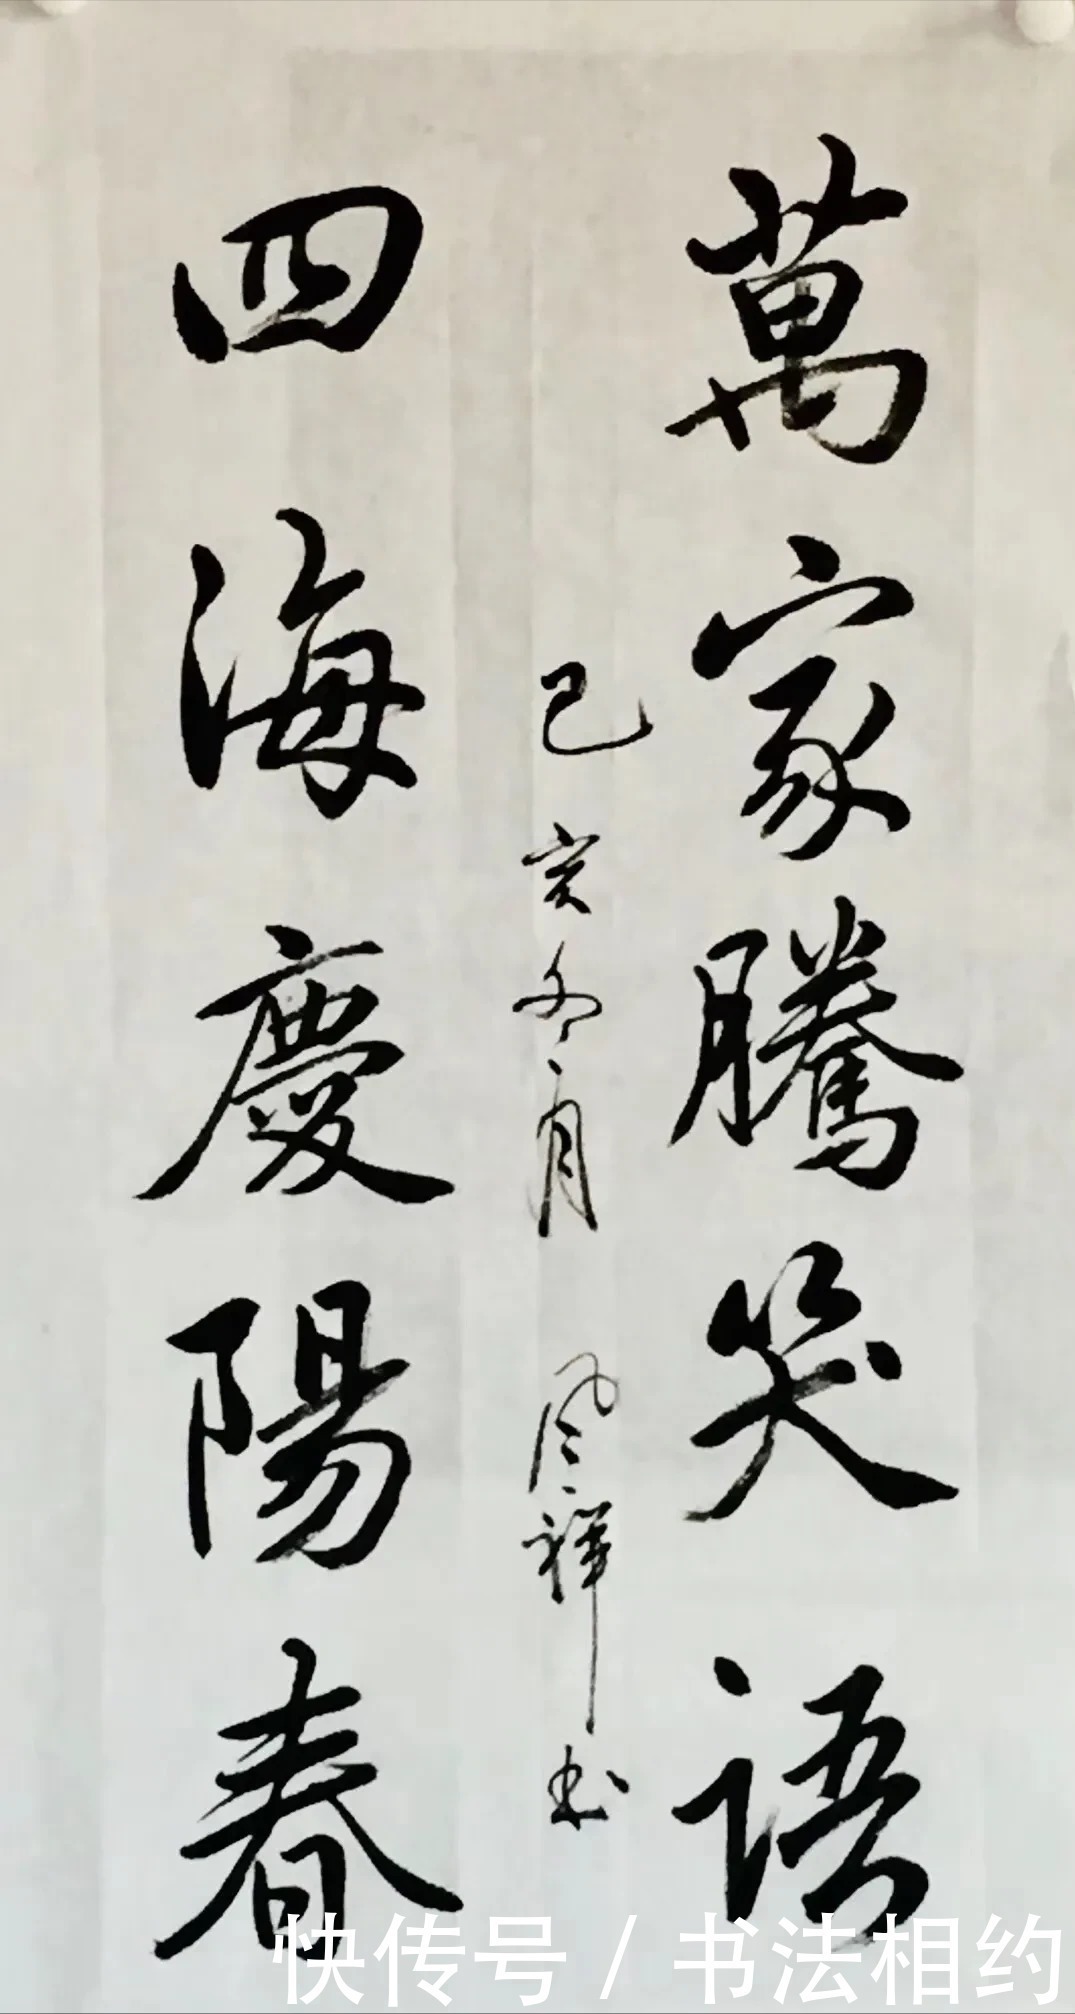 萬家騰笑語
己亥冬月 风祥书
四海慶陽春
快传号 / 书法相约